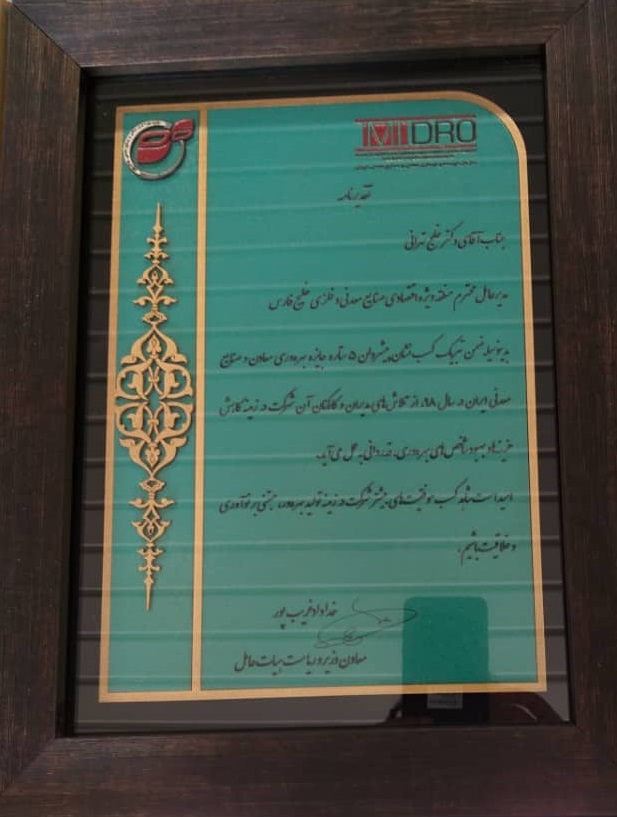 IMIDRO
تقدیرنامه
جناب آقای دکتر خلج تهرانی
مدیرعامل محترم منطقه ویژه اقتصادی صنایع معدنی و فلزی خلیج فارس
بدینوسیله ضمن تبریک کسب نشان پیشرو ۵ ستاره جایزه بهره‌وری معادن و صنایع
معدنی ایران در سال ۹۸، از تلاش‌های مدیران و کارکنان آن شرکت در زمینه کاهش
هزینه‌ها و بهبود شاخص‌های بهره‌وری، قدردانی به عمل می‌آید.
امید است شاهد کسب موفقیت‌های بیشتر شرکت در زمینه تولید بهره‌ور، مبتنی بر نوآوری
و خلاقیت باشیم.
خداداد غریب پور
معاون وزیر و ریاست هیات عامل